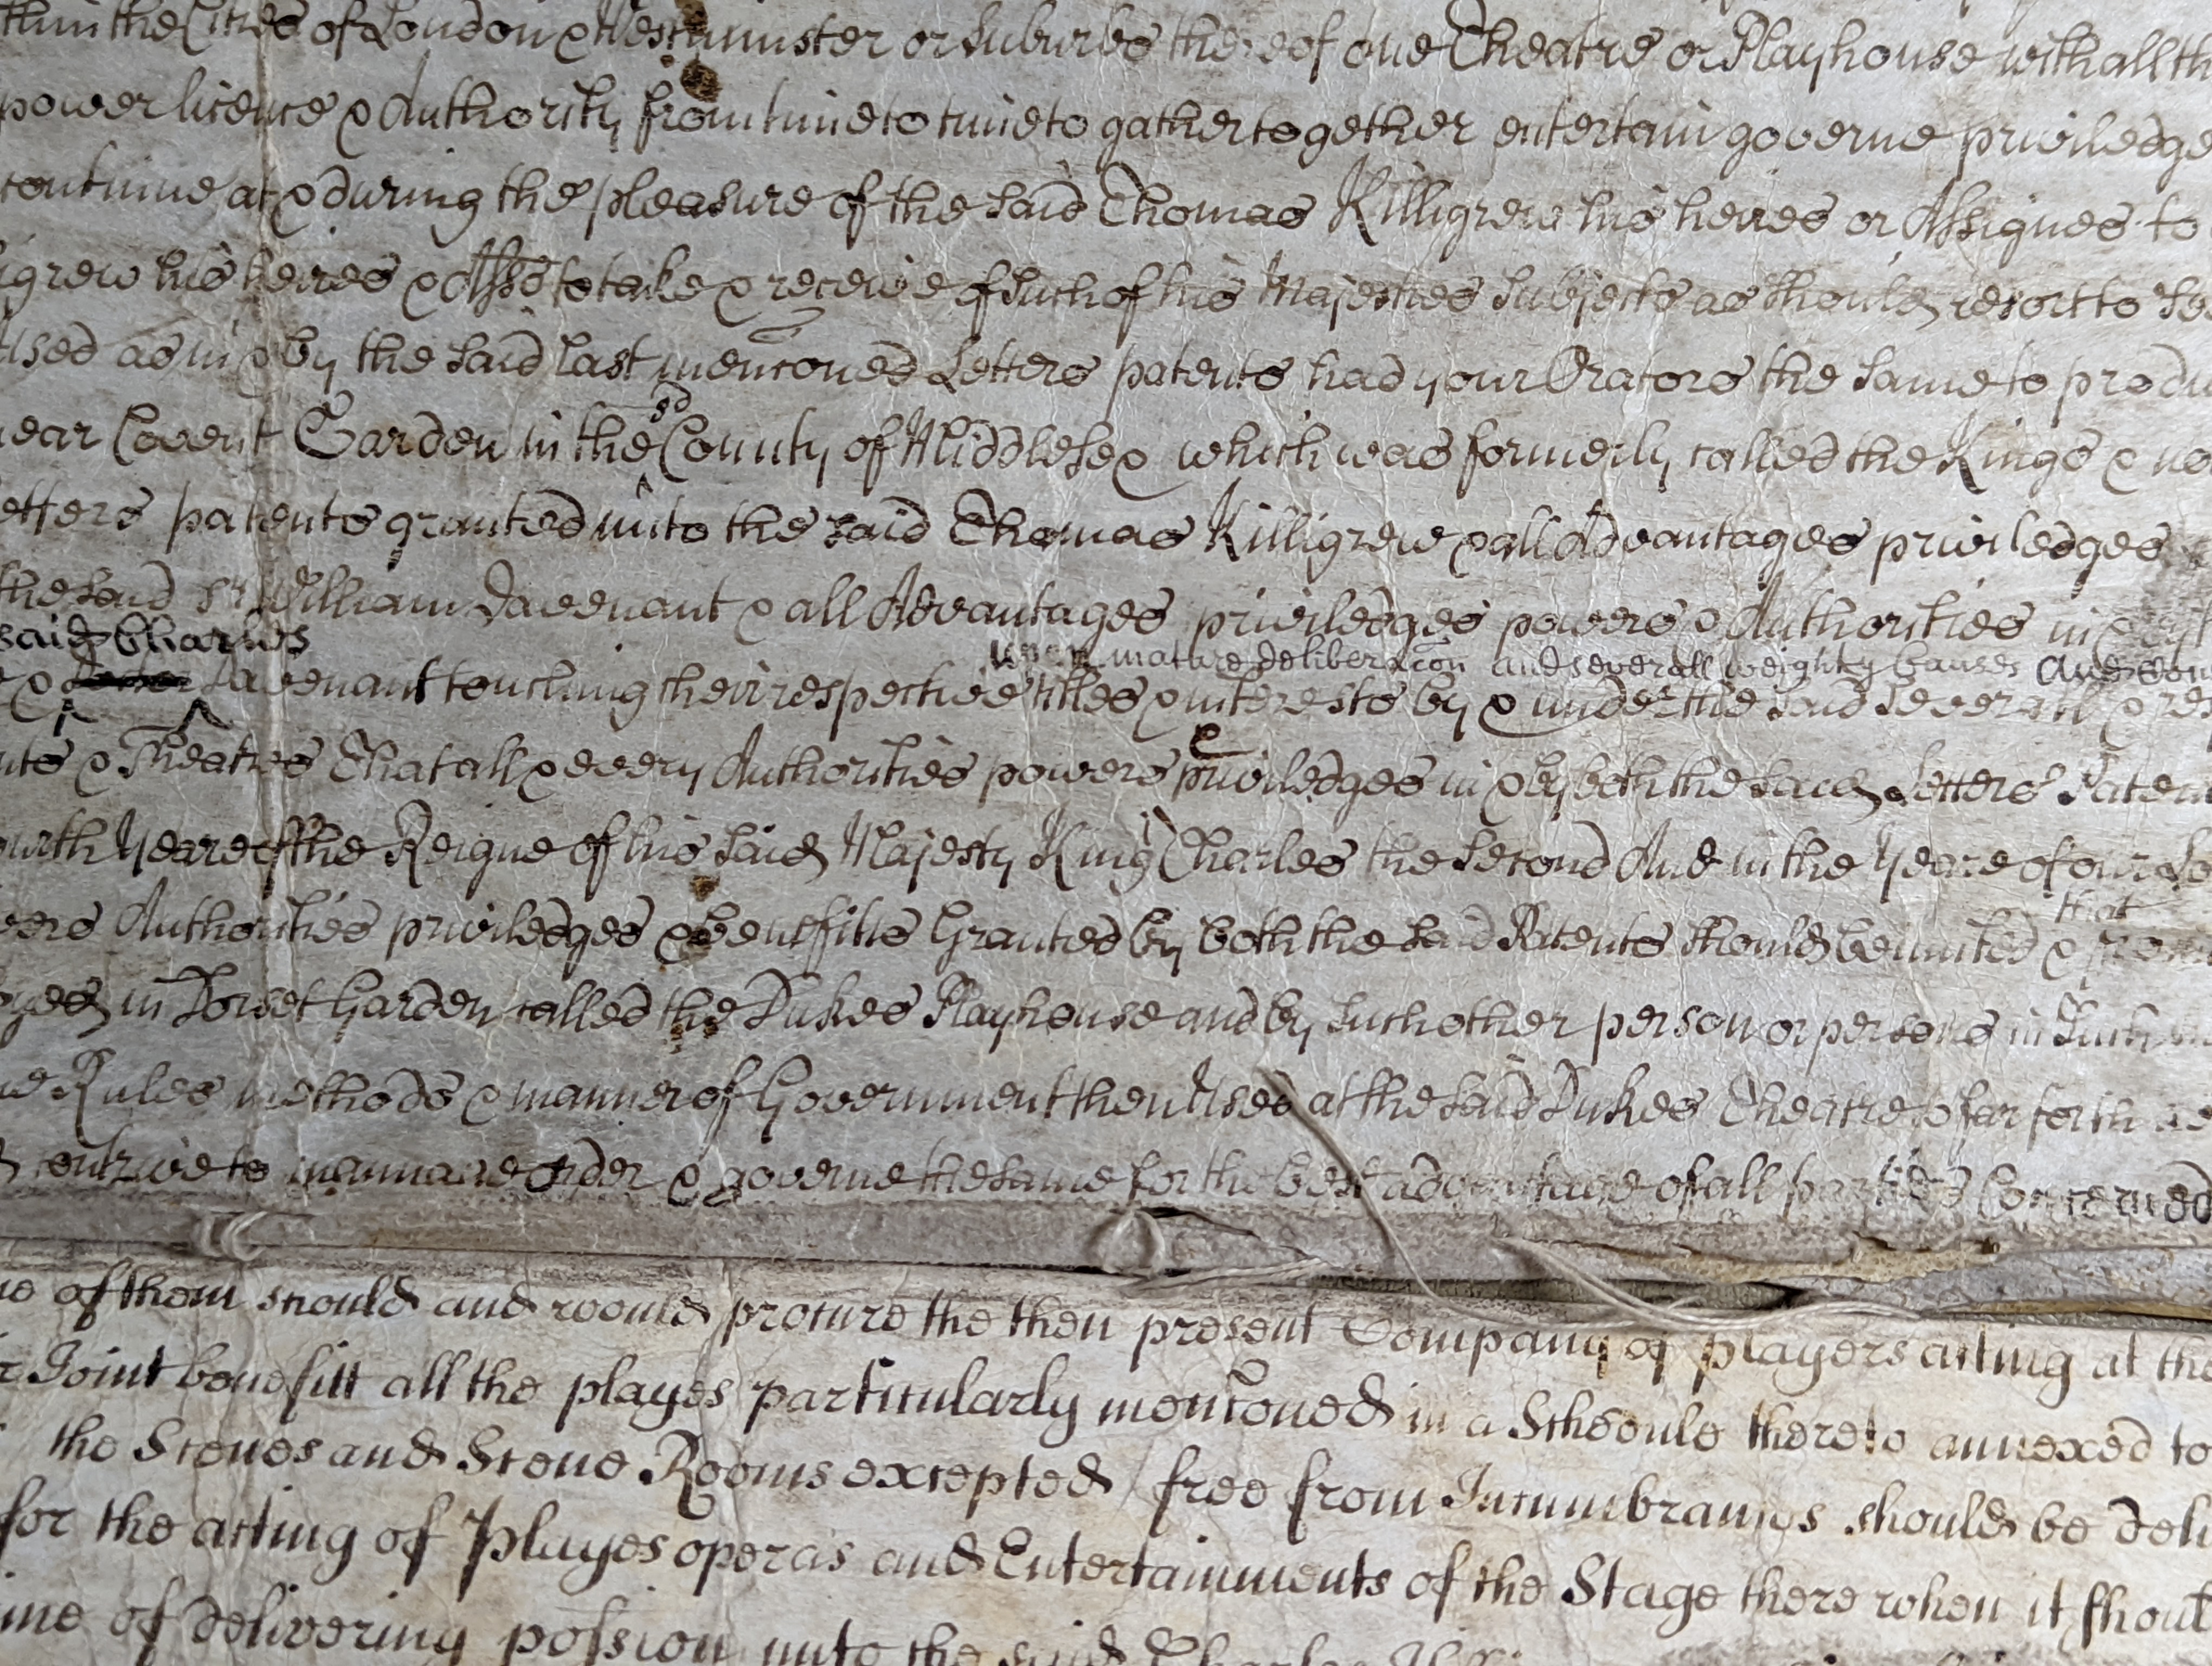 thin the Cities of London & Westminster or Suburbs thereof one Theatre or Playhouse with all th
power licence & Authority from time to time to gather together entertain governe priviledge
continue at & during the pleasure of the said Thomas Killigrew his heires or Assignes to
igrew his heires & Asss to take & receive of such of his Majesties Subjects as should resort to
used as in & by the said last menconed Letters patents had your Orators the same to produ
sd
near Covent Garden in the County of Middlesex which was formerly called the Kings & no
Letters patents granted unto the said Thomas Killigrew & all Advantages priviledges
the said Sr William Davenant & all Advantages priviledges powers & Authorities in
said Charles upon mature deliberacon and severall weighty Causes And Con
& Davenant touching their respective titles & interests by & under the said severall & re
nts & Theatres That all & every Authorities powers priviledges in & by both the said Letters Patem
ourth Yeare of the Reigne of his said Majesty King Charles the Second And in the Yeare of our Lo
that
wers Authorities priviledges & benefitts Granted by both the said Patents should be united & from
in Dorset Garden called the Dukes Playhouse and by such other person or persons in such
Rules methods & manner of Government then Used at the said Dukes Theatre so far forth as
contrive to mannage order & governe the same for the best advantage of all parties Concerned
of them should and would procure the then present Company of players acting at the
Joint benefitt all the playes particularly menconed in a Schedule thereto annexed to
the Scenes and Scene Rooms excepted free from Incumbrances should be deli
for the acting of Playes operas and Entertainments of the Stage there when it shoul
ime of delivering possion unto the said Charles